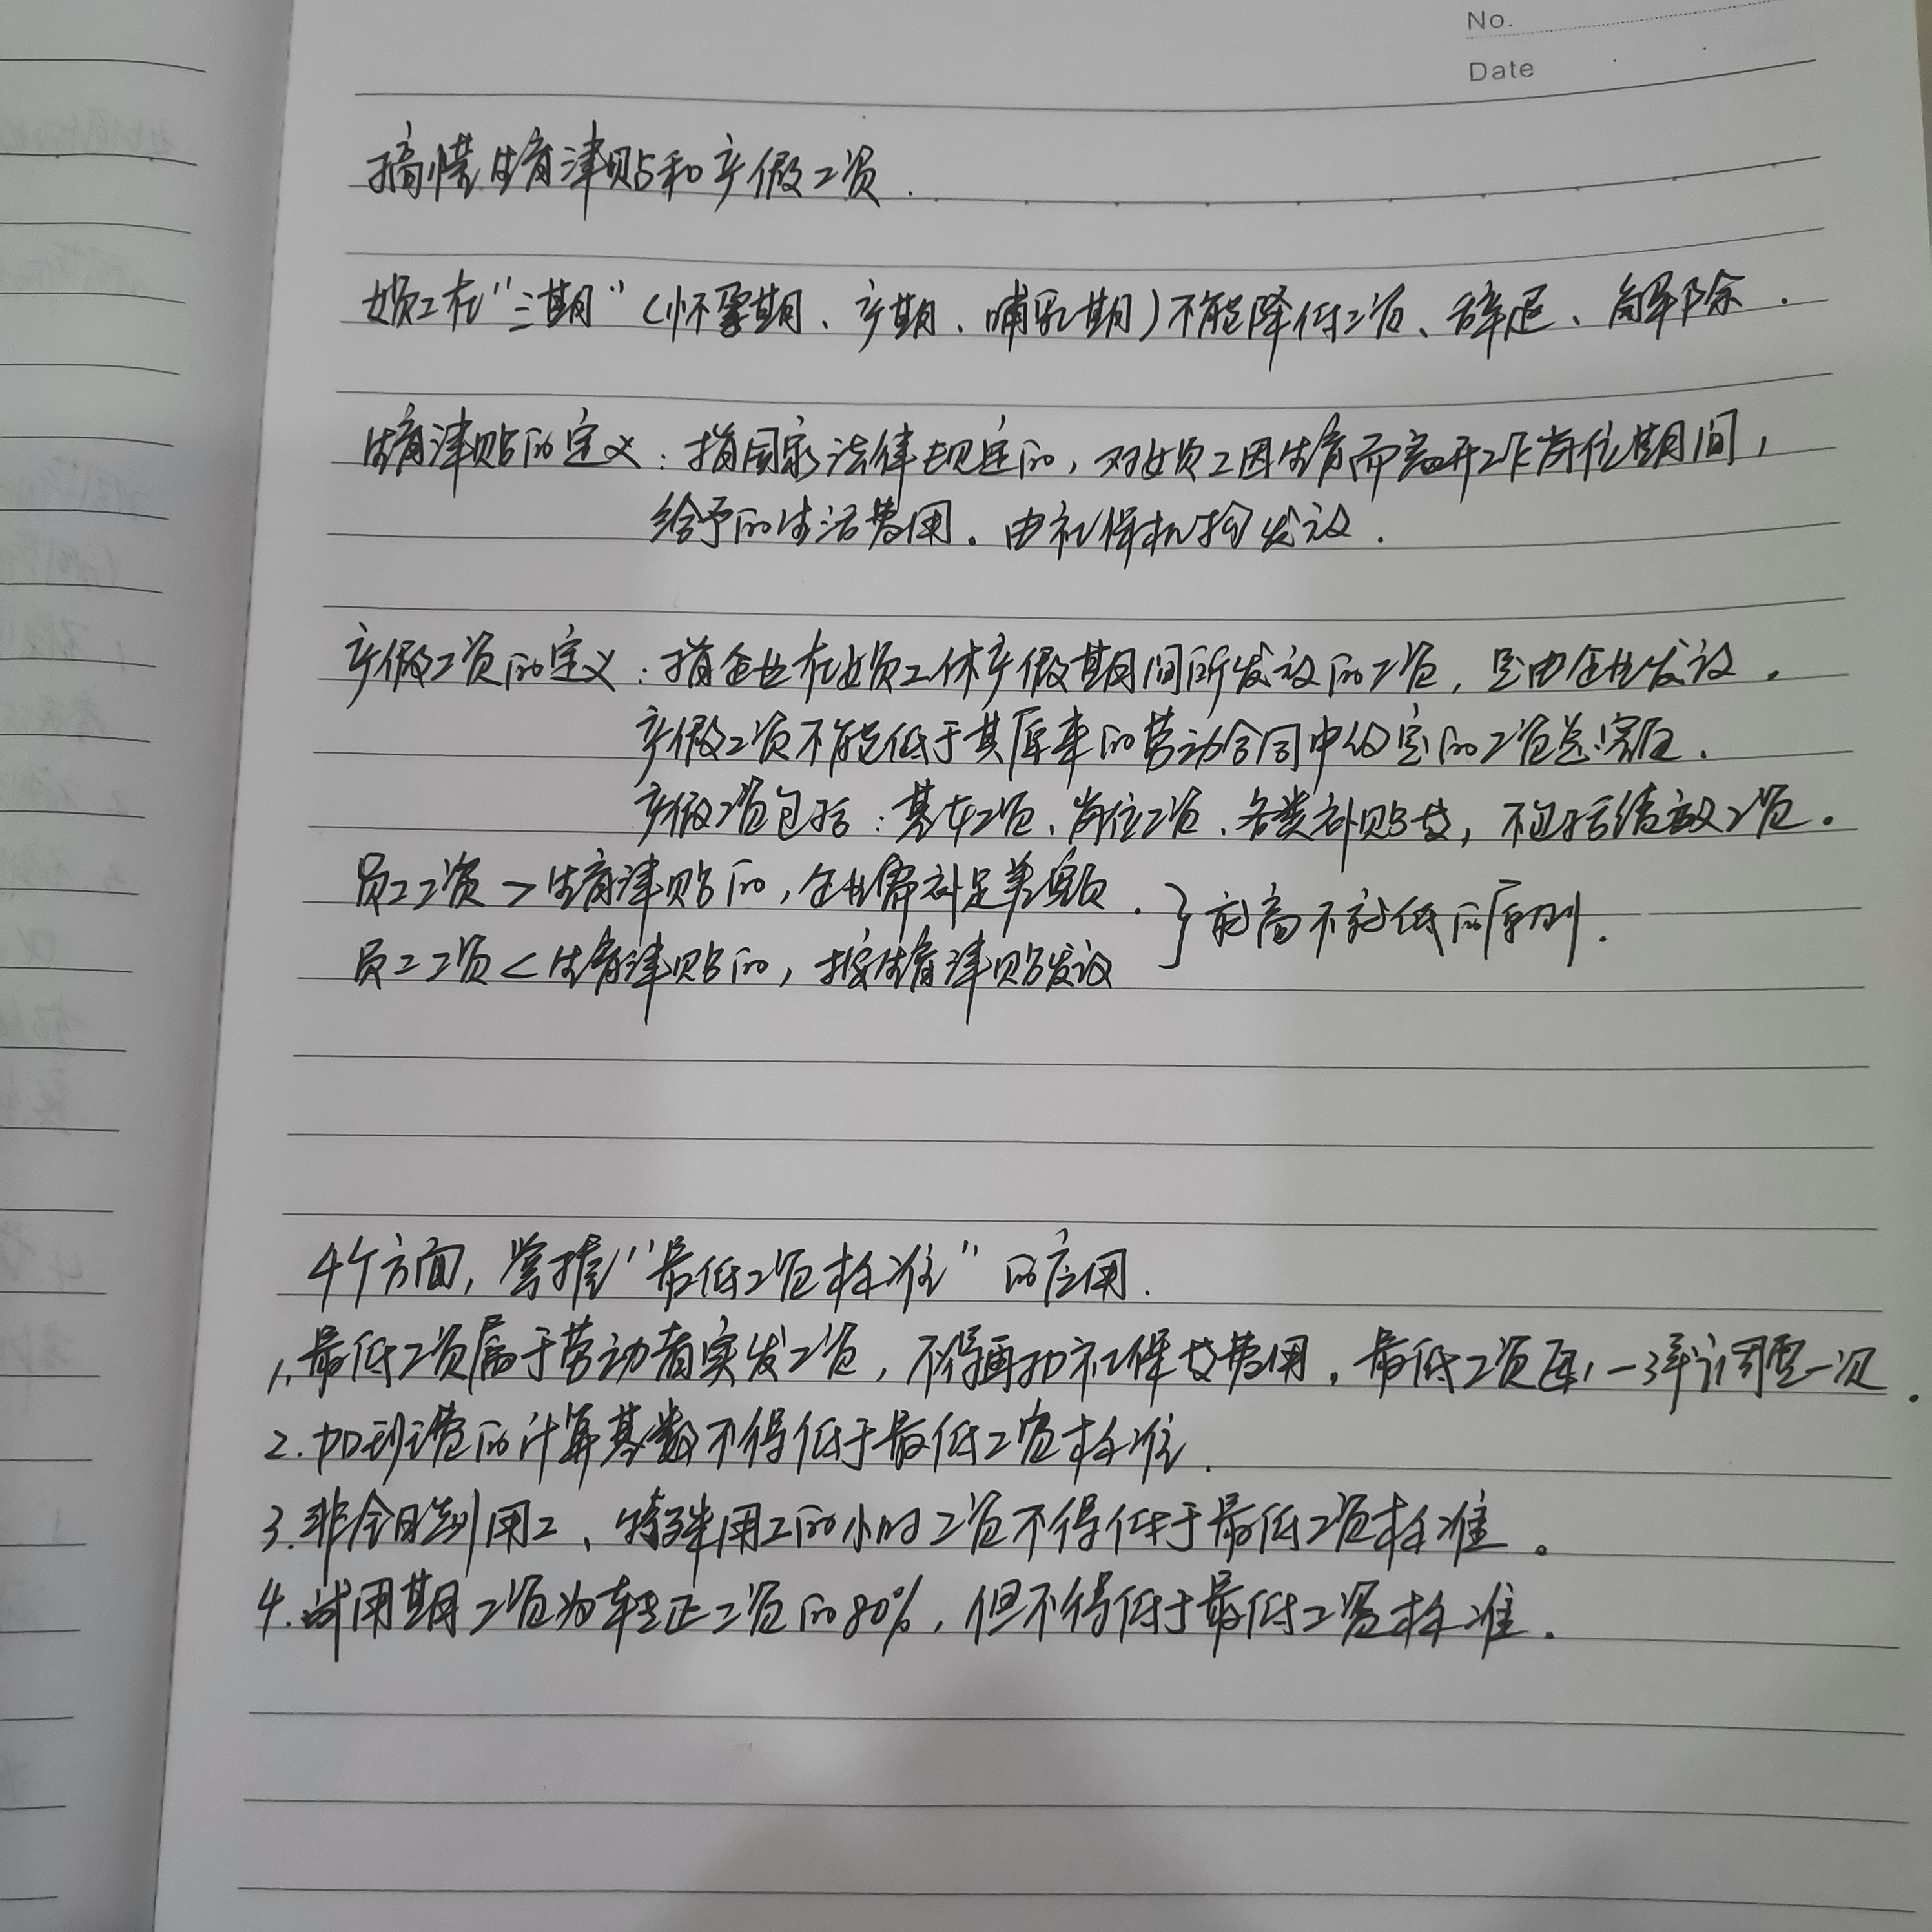 No.
Date
搞懂生育津贴和产假工资.
女员工在"三期"(怀孕期、产期、哺乳期)不能降低工资、辞退、解除.
生育津贴的定义:指国家法律规定的,对女员工因生育而离开工作岗位期间,
给予的生活费用。由社保机构发放.
产假工资的定义:指企业在女员工休产假期间所发放的工资,是由企业发放.
产假工资不能低于其原来的劳动合同中约定的工资总额.
产假工资包括:基本工资、岗位工资、各类补贴等,不包括绩效工资.
员工工资>生育津贴的,企业需补足差额.
员工工资<生育津贴的,按生育津贴发放
}就高不就低的原则.
4个方面,掌握"最低工资标准"的应用.
1.最低工资属于劳动者实发工资,不得再扣社保等费用,最低工资每1-3年调整一次.
2.加班费的计算基数不得低于最低工资标准.
3.非全日制用工、特殊用工的小时工资不得低于最低工资标准。
4.试用期工资为转正工资的80%,但不得低于最低工资标准.